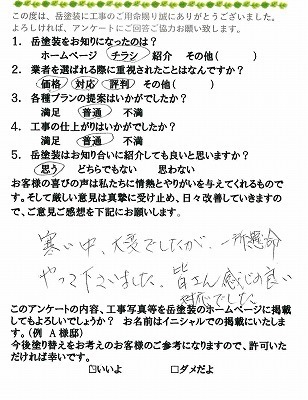 この度は、岳塗装に工事のご用命賜り誠にありがとうございました。
よろしければ、アンケートにご回答ご協力お願い致します。
1. 岳塗装をお知りになったのは？
ホームページ チラシ 紹介 その他( )
2. 業者を選ばれる際に重視されたことはなんですか？
価格 対応 評判 その他( )
3. 各種プランの提案はいかがでしたか？
満足 普通 不満
4. 工事の仕上がりはいかがでしたか？
満足 普通 不満
5. 岳塗装をお知り合いに紹介しても良いと思いますか？
思う どちらでもない 思わない
お客様の喜びの声は私たちに情熱とやりがいを与えてくれるものです。そして厳しい意見は真摯に受け止め、日々改善していきますので、ご意見ご感想を下記にお願いします。
寒い中、大変でしたが、一所懸命
やって下さいました。皆さん感じの良い
対応でした
このアンケートの内容、工事写真等を岳塗装のホームページに掲載してもよろしいでしょうか？ お名前はイニシャルでの掲載にいたします。(例 A様邸)
今後塗り替えをお考えのお客様のご参考になりますので、許可いただければ幸いです。
☑いいよ □ダメだよ